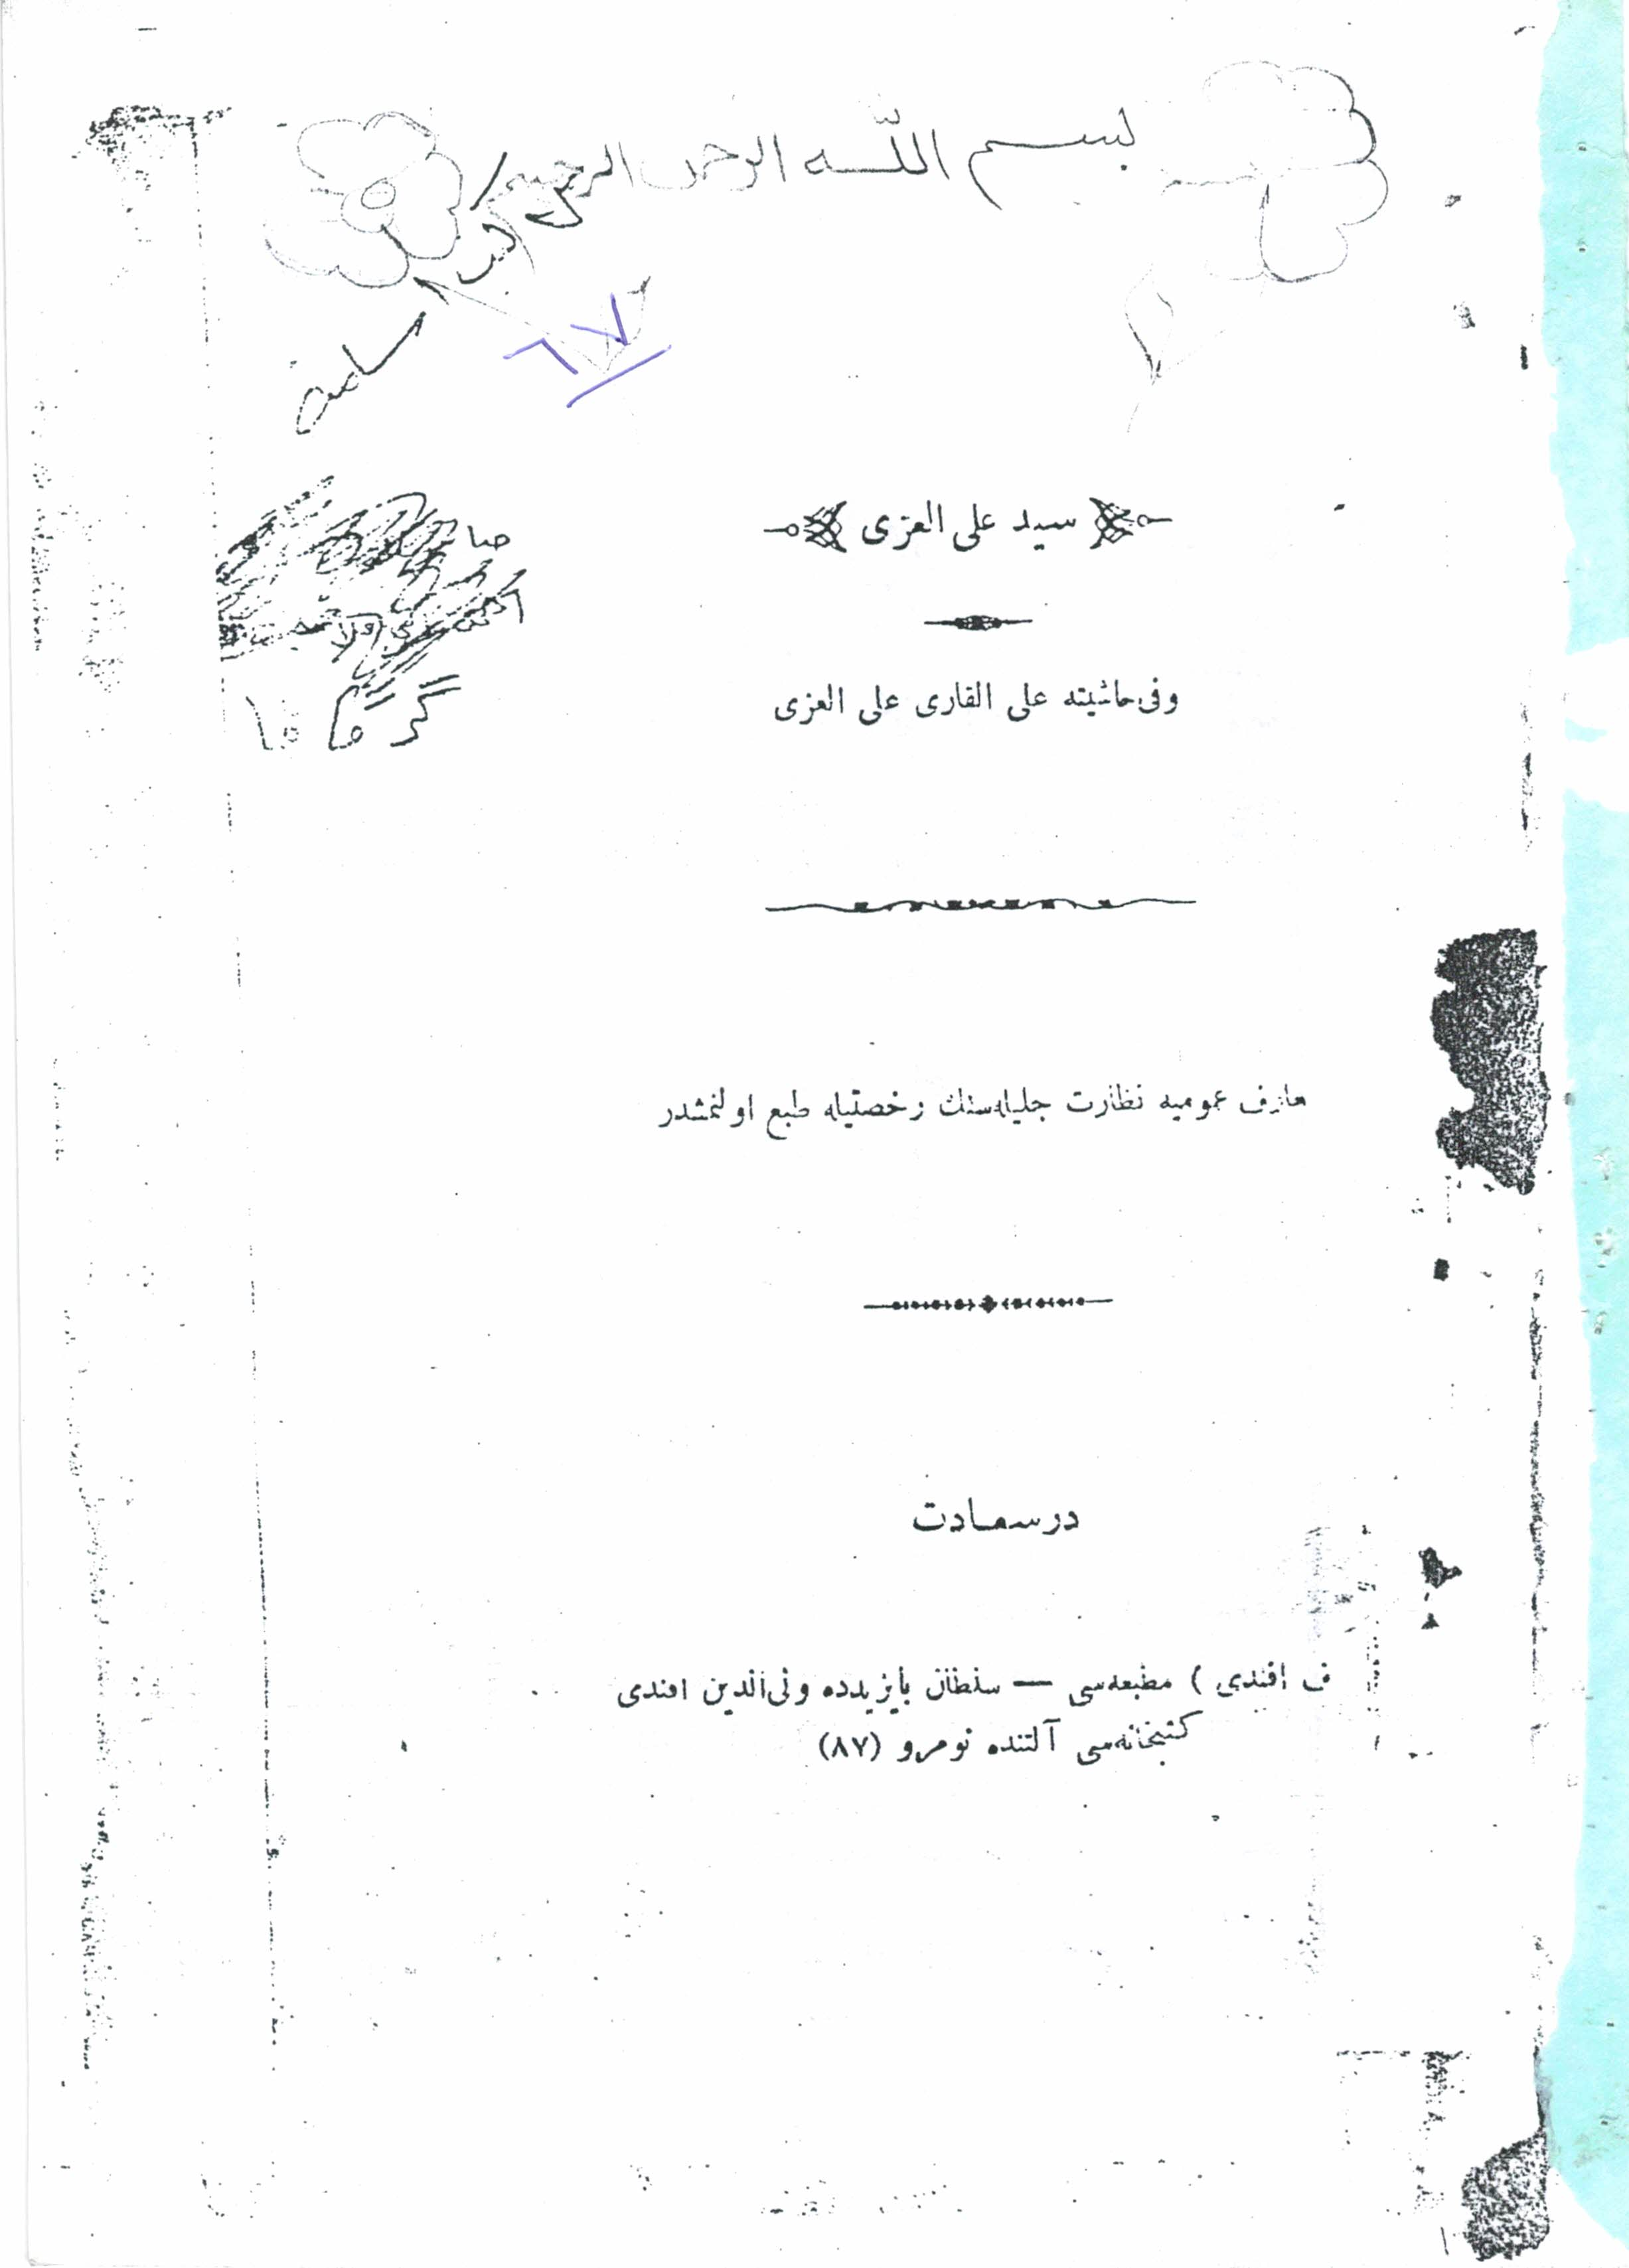 بسم اللّه الرحمن الرحيم
٦٧
سيد على العزى
وفى حاشيته على القارى على العزى
عارف عموميه نظارت جليله‌سنك رخصتيله طبع اولنمشدر
درسعادت
ف افندى ) مطبعه‌سى — سلطان بايزيدده ولى‌الدين افندى
كتبخانه‌سى آلتنده نومرو (٨٧)